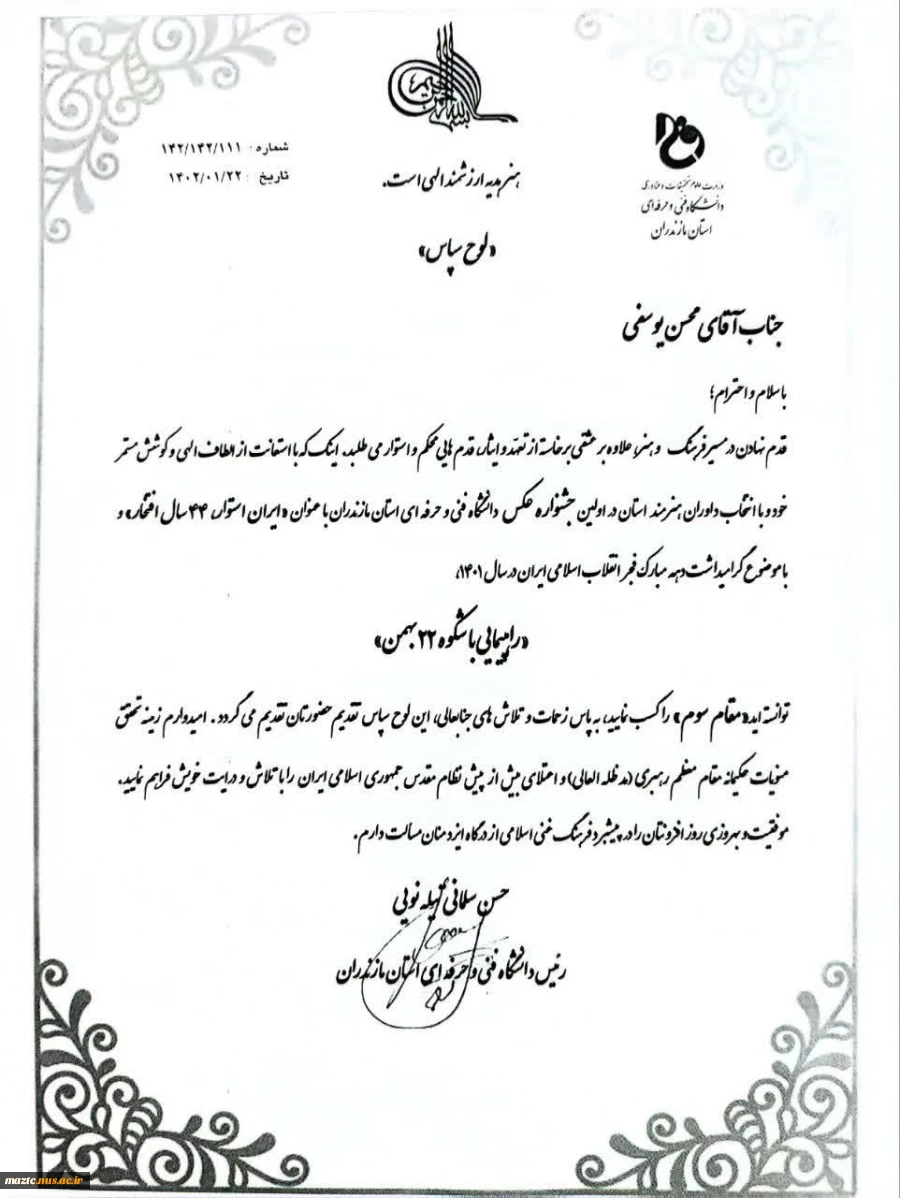 بسم الله الرحمن الرحیم
شماره: ۱۴۲/۱۴۲/۱۱۱
تاریخ : ۱۴۰۲/۰۱/۲۲
وزارت علوم تحقیقات و فناوری
دانشگاه فنی و حرفه‌ای
استان مازندران
هنر هدیه ارزشمند الهی است.
«لوح سپاس»
جناب آقای محسن یوسفی
با سلام و احترام؛
قدم نهادن در مسیر فرهنگ و هنر، علاوه بر عشقی برخاسته از تعهد و ایثار، قدم هایی محکم و استوار می طلبد. اینک که با استعانت از الطاف الهی و کوشش مستمر
خود و با انتخاب داوران هنرمند استان در اولین جشنواره عکس دانشگاه فنی و حرفه ای استان مازندران با عنوان «ایران استوار، ۴۴ سال افتخار» و
با موضوع گرامیداشت دهه مبارک فجر انقلاب اسلامی ایران در سال ۱۴۰۱،
«راهپیمایی باشکوه ۲۲ بهمن»
توانسته اید «مقام سوم» را کسب نمایید، به پاس زحمات و تلاش های جنابعالی، این لوح سپاس تقدیم حضورتان تقدیم می گردد . امیدوارم زمینه تحقق
منویات حکیمانه مقام معظم رهبری (مد ظله العالی) و اعتلای بیش از پیش نظام مقدس جمهوری اسلامی ایران را با تلاش و درایت خویش فراهم نمایید.
موفقیت و بهروزی روز افزونتان را در پیشبرد فرهنگ غنی اسلامی از درگاه ایزد منان مسالت دارم.
حسن سلمانی
رئیس دانشگاه فنی و حرفه ای استان مازندران
maztc.nus.ac.ir